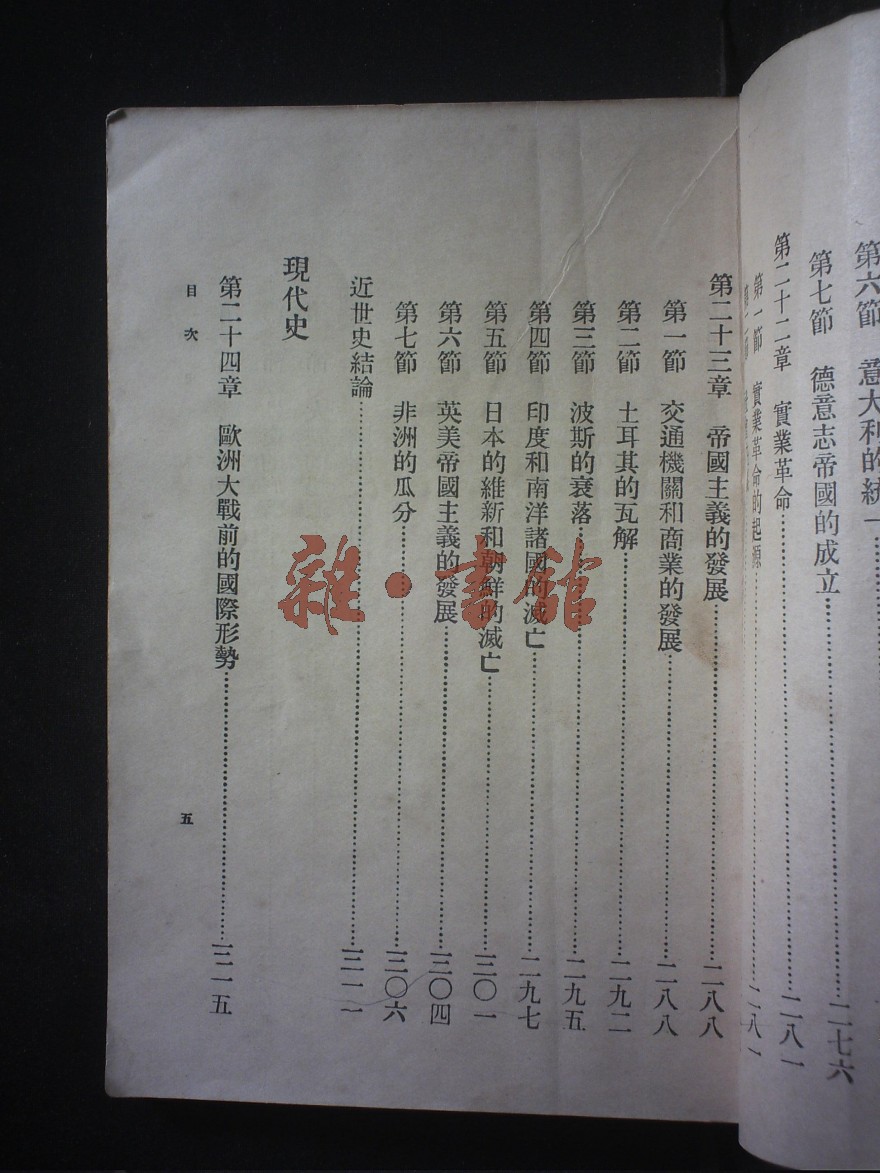 第六節　意大利的統一
第七節　德意志帝國的成立……二七六
第二十二章　實業革命……二八一
第一節　實業革命的起源……二八一
第二十三章　帝國主義的發展……二八八
第一節　交通機關和商業的發展……二八八
第二節　土耳其的瓦解……二九二
第三節　波斯的衰落……二九五
第四節　印度和南洋諸國的滅亡……二九七
第五節　日本的維新和朝鮮的滅亡……三〇一
第六節　英美帝國主義的發展……三〇四
第七節　非洲的瓜分……三〇六
近世史結論……三一一
現代史
第二十四章　歐洲大戰前的國際形勢……三一五
目次
五
雜·書館